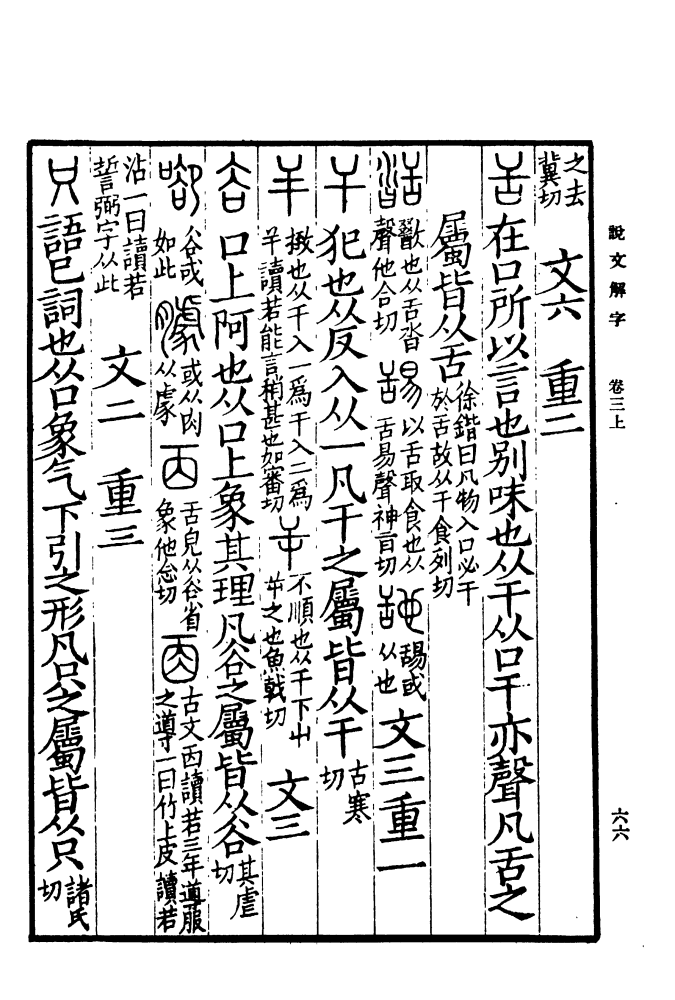 說文解字 卷三上
六六
之去冀切 文六 重二
舌 在口所以言也別味也从干从口干亦聲凡舌之
屬皆从舌 徐鍇曰凡物入口必干於舌故从干食列切
𦧟 歠也从舌沓聲他合切 舓 以舌取食也从舌易聲神㫖切 𦧇 舓或从也 文三 重一
干 犯也从反入从一凡干之屬皆从干 古寒切
𢆉 也从干入一爲干入二爲𢆉讀若能言稍甚也如審切 屰 不順也从干下屮屰之也魚戟切 文三
谷 口上阿也从口上象其理凡谷之屬皆从谷 其虐切
㕁 谷或如此 臄 或从肉从豦 㐁 舌皃从谷省象他念切 𠀬 古文㐁讀若三年導服之導一曰竹上皮讀若
沾一曰讀若誓弼字从此 文二 重三
只 語巳詞也从口象气下引之形凡只之屬皆从只 諸氏切